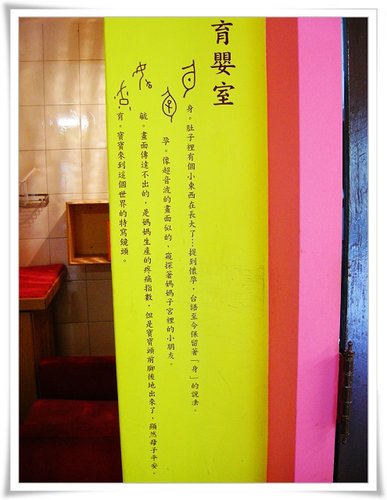 育嬰室
身。肚子裡有個小東西在長大了…提到懷孕，台語至今保留著「身」的說法。
孕。像超音波的畫面似的，窺探著媽媽子宮裡的小朋友。
毓。畫面傳達不出的，是媽媽生產的疼痛指數，但是寶寶頭前腳後地出來了，顯然母子平安。
育。寶寶來到這個世界的特寫鏡頭。